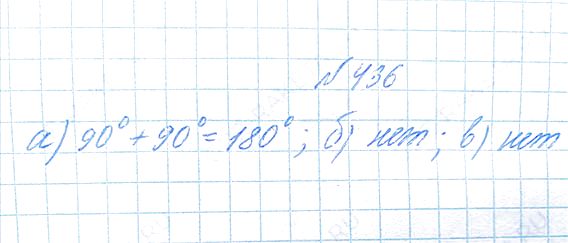 № 436
а) 90° + 90° = 180°; б) нет; в) нет